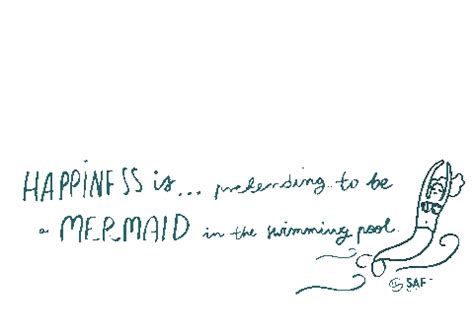 HAPPINESS is... pretending to be
a MERMAID in the swimming pool.
SAF